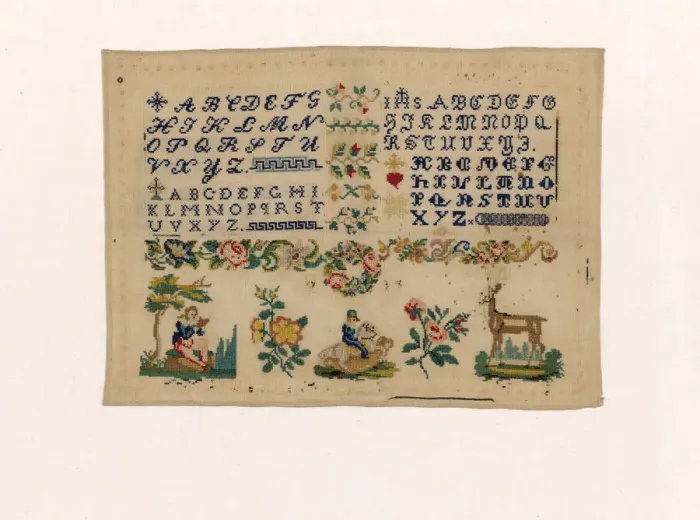 A B C D E F G
H I K L M N
O P Q R S T U
V X Y Z.
A B C D E F G H I
K L M N O P Q R S T
U V X Y Z.
IHS A B C D E F G
H I K L M N O P Q
R S T U V X Y Z.
A B C D E F G
H I K L M N O
P Q R S T U V
X Y Z